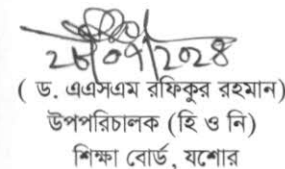 ( ড. এএসএম রফিকুর রহমান)
উপপরিচালক (হি ও নি)
শিক্ষা বোর্ড, যশোর